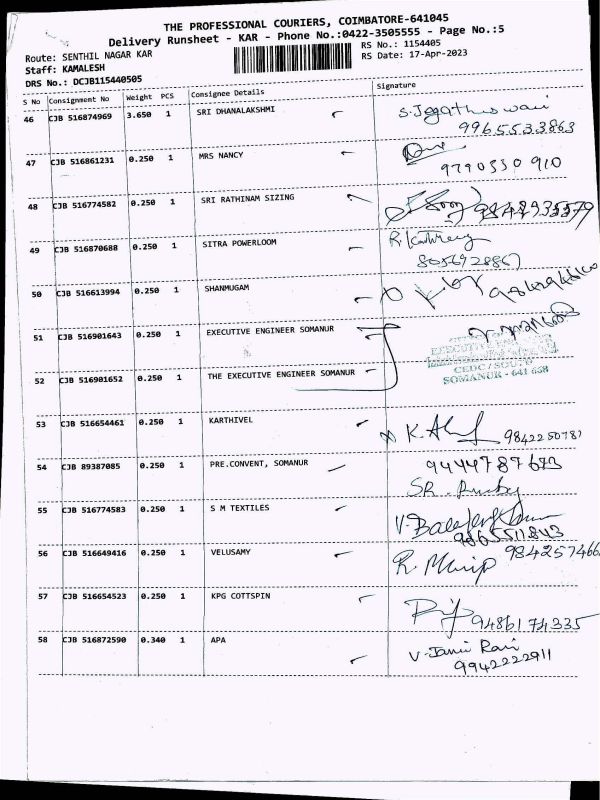 THE PROFESSIONAL COURIERS, COIMBATORE-641045
Delivery Runsheet - KAR - Phone No.:0422-3505555 - Page No.:5
Route: SENTHIL NAGAR KAR
RS No.: 1154405
Staff: KAMALESH
RS Date: 17-Apr-2023
DRS No.: DCJB115440505
S No Consignment No Weight PCS Consignee Details Signature
46 CJB 516874969 3.650 1 SRI DHANALAKSHMI S.Jegathiswari
9965533863
47 CJB 516861231 0.250 1 MRS NANCY
9790550 910
48 CJB 516774582 0.250 1 SRI RATHINAM SIZING
49 CJB 516870688 0.250 1 SITRA POWERLOOM
50 CJB 516613994 0.250 1 SHANMUGAM
51 CJB 516901643 0.250 1 EXECUTIVE ENGINEER SOMANUR
EXECUTIVE ENGINEER
CEDC / SOUTH
SOMANUR - 641 668
52 CJB 516901652 0.250 1 THE EXECUTIVE ENGINEER SOMANUR
53 CJB 516654461 0.250 1 KARTHIVEL
9842250787
54 CJB 89387085 0.250 1 PRE.CONVENT, SOMANUR 9444787673
SR.
55 CJB 516774583 0.250 1 S M TEXTILES
9865511843
56 CJB 516649416 0.250 1 VELUSAMY 984257466
57 CJB 516654523 0.250 1 KPG COTTSPIN
9486174335
58 CJB 516872590 0.340 1 APA V-Jamu Rani
9942222911